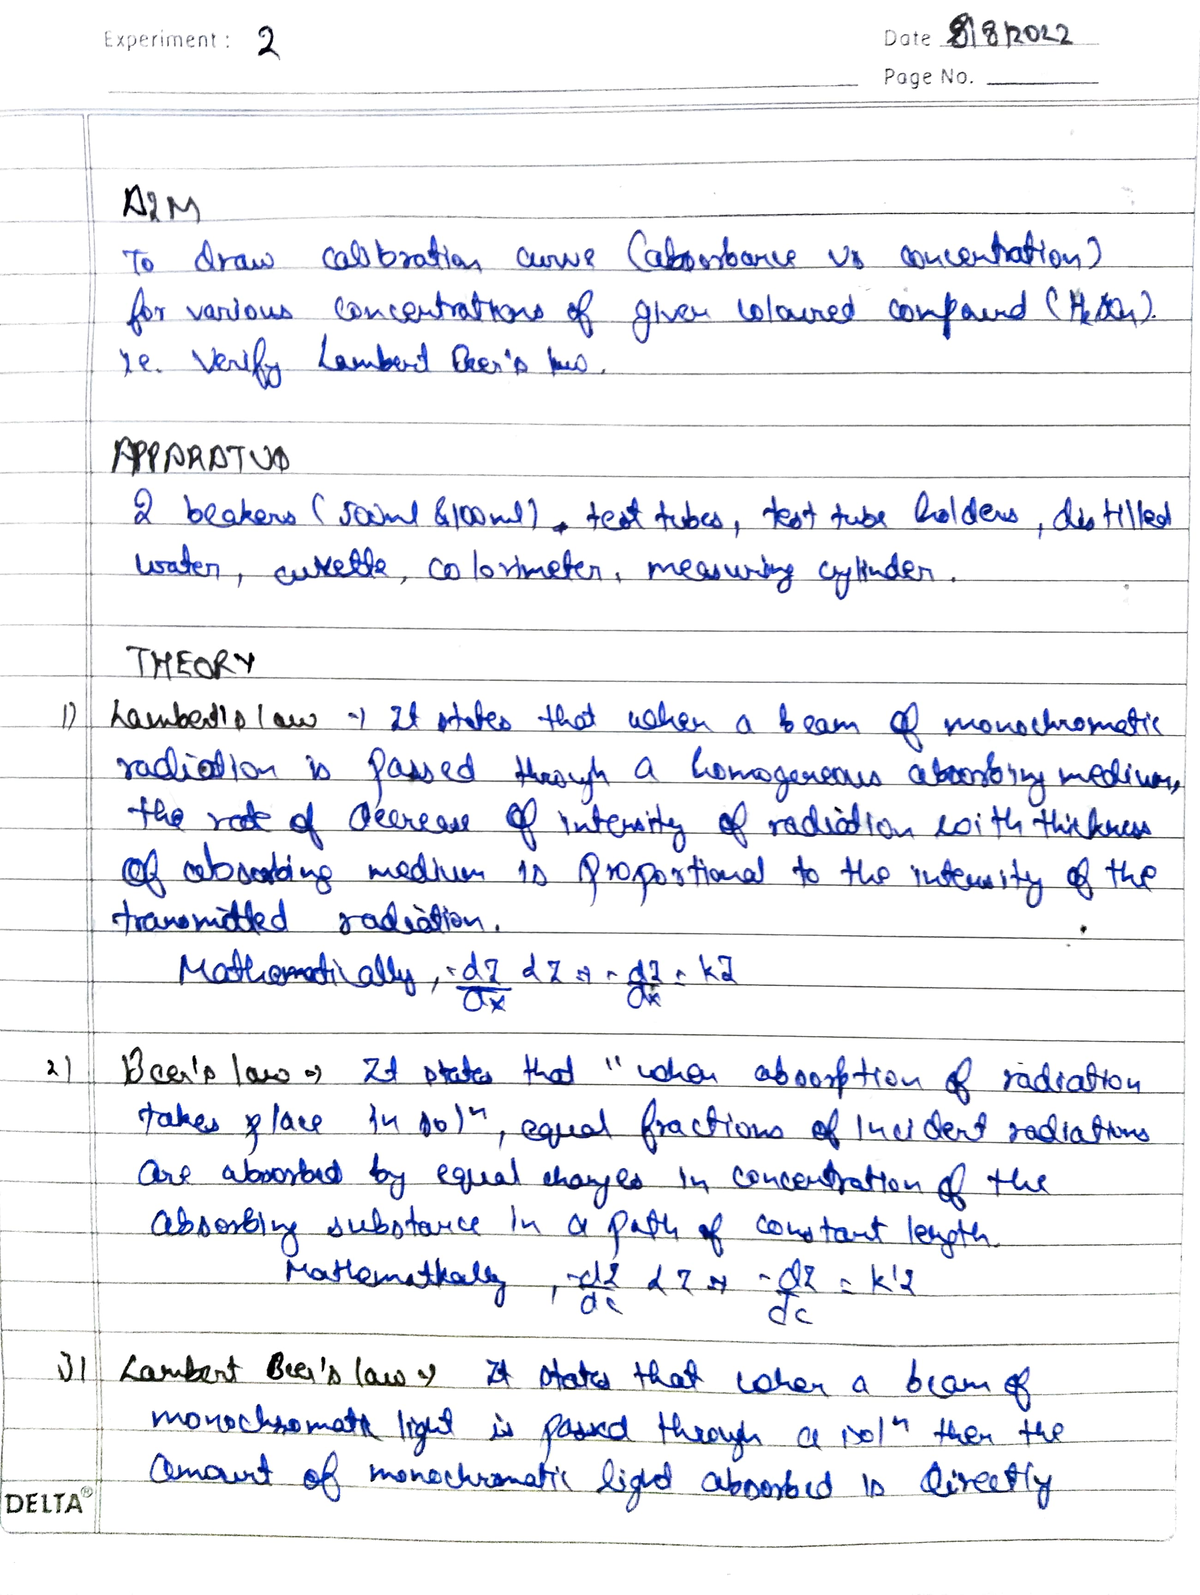 Experiment : 2
Date 8/8/2022
Page No.
AIM
To draw calibration curve (absorbance vs concentration)
for various concentrations of given coloured compound
ie. Verify Lambert Beer's law.
APPARATUS
2 beakers (500ml & 100ml), test tubes, test tube holders, distilled
water, cuvette, colorimeter, measuring cylinder.
THEORY
1) Lambert's law → It states that when a beam of monochromatic
radiation is passed through a homogeneous absorbing medium,
the rate of decrease of intensity of radiation with thickness
of absorbing medium is proportional to the intensity of the
transmitted radiation.
Mathematically, -dI/dx α I ⇒ -dI/dx = kI
2) Beer's law ⇒ It states that "when absorption of radiation
takes place in solⁿ, equal fractions of incident radiations
are absorbed by equal changes in concentration of the
absorbing substance in a path of constant length.
Mathematically, -dI/dc α I ⇒ -dI/dc = k'I
3) Lambert Beer's law ⇒ It states that when a beam of
monochromatic light is passed through a solⁿ then the
amount of monochromatic light absorbed is directly
DELTA®